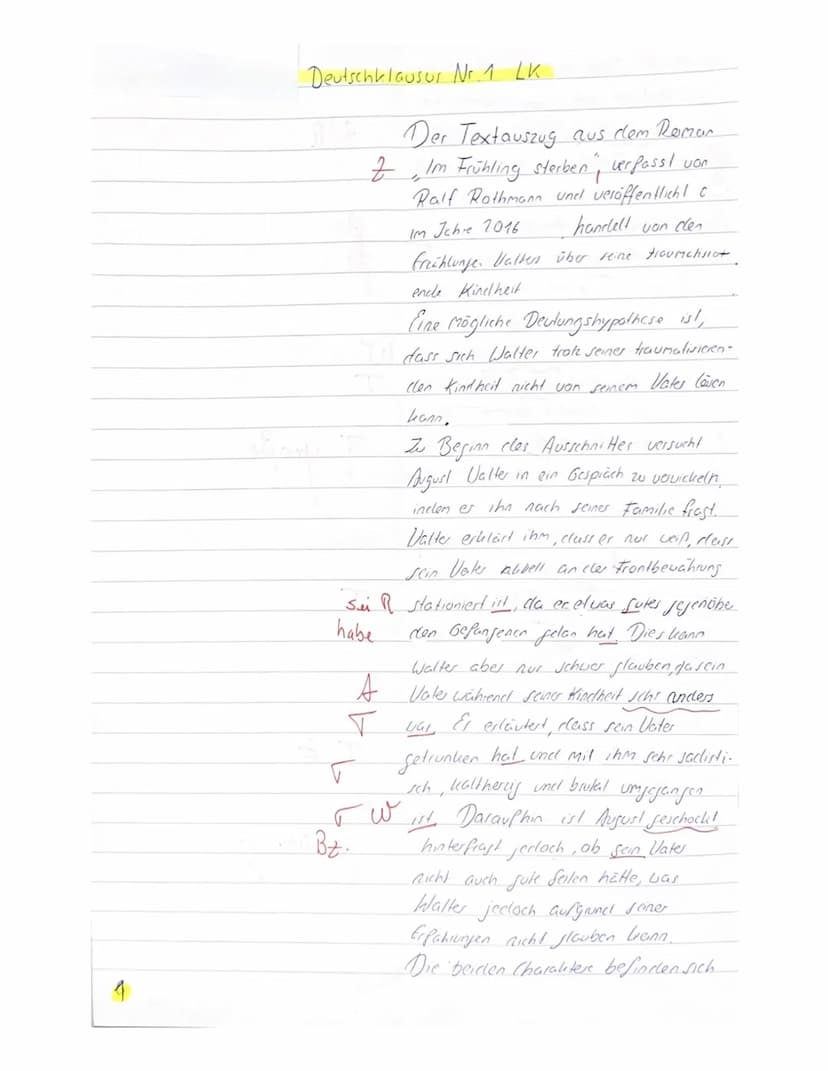 Deutschklausur Nr. 1 LK
Der Textauszug aus dem Roman
Z „Im Frühling sterben", verfasst von
Ralf Rothmann und veröffentlicht
im Jahre 2016 handelt von den
Walters über seine
ende Kindheit
Eine mögliche Deutungshypothese ist,
dass sich Walter trotz seiner traumatisieren-
den Kindheit nicht von seinem Vater lösen
kann.
Zu Beginn des Ausschnittes versucht
August Walter in ein Gespräch zu verwickeln,
indem er ihn nach seiner Familie fragt.
Walter erklärt ihm, dass er nur weiß, dass
sein Vater an der Frontbewährung
sei R stationiert ist, da er etwas gutes gegenüber
habe den Gefangenen getan hat. Dies kann
Walter aber nur schwer glauben, da sein
A Vater während seiner Kindheit sehr anders
T war. Er erläutert, dass sein Vater
T getrunken hat und mit ihm sehr sadisti-
sch, kaltherzig und brutal umgegangen
T W ist. Daraufhin ist August geschockt
Bz. hinterfragt jedoch, ob sein Vater
nicht auch gute Seiten hätte, was
Walter jedoch aufgrund seiner
Erfahrungen nicht glauben kann.
Die beiden Charaktere befinden sich
1